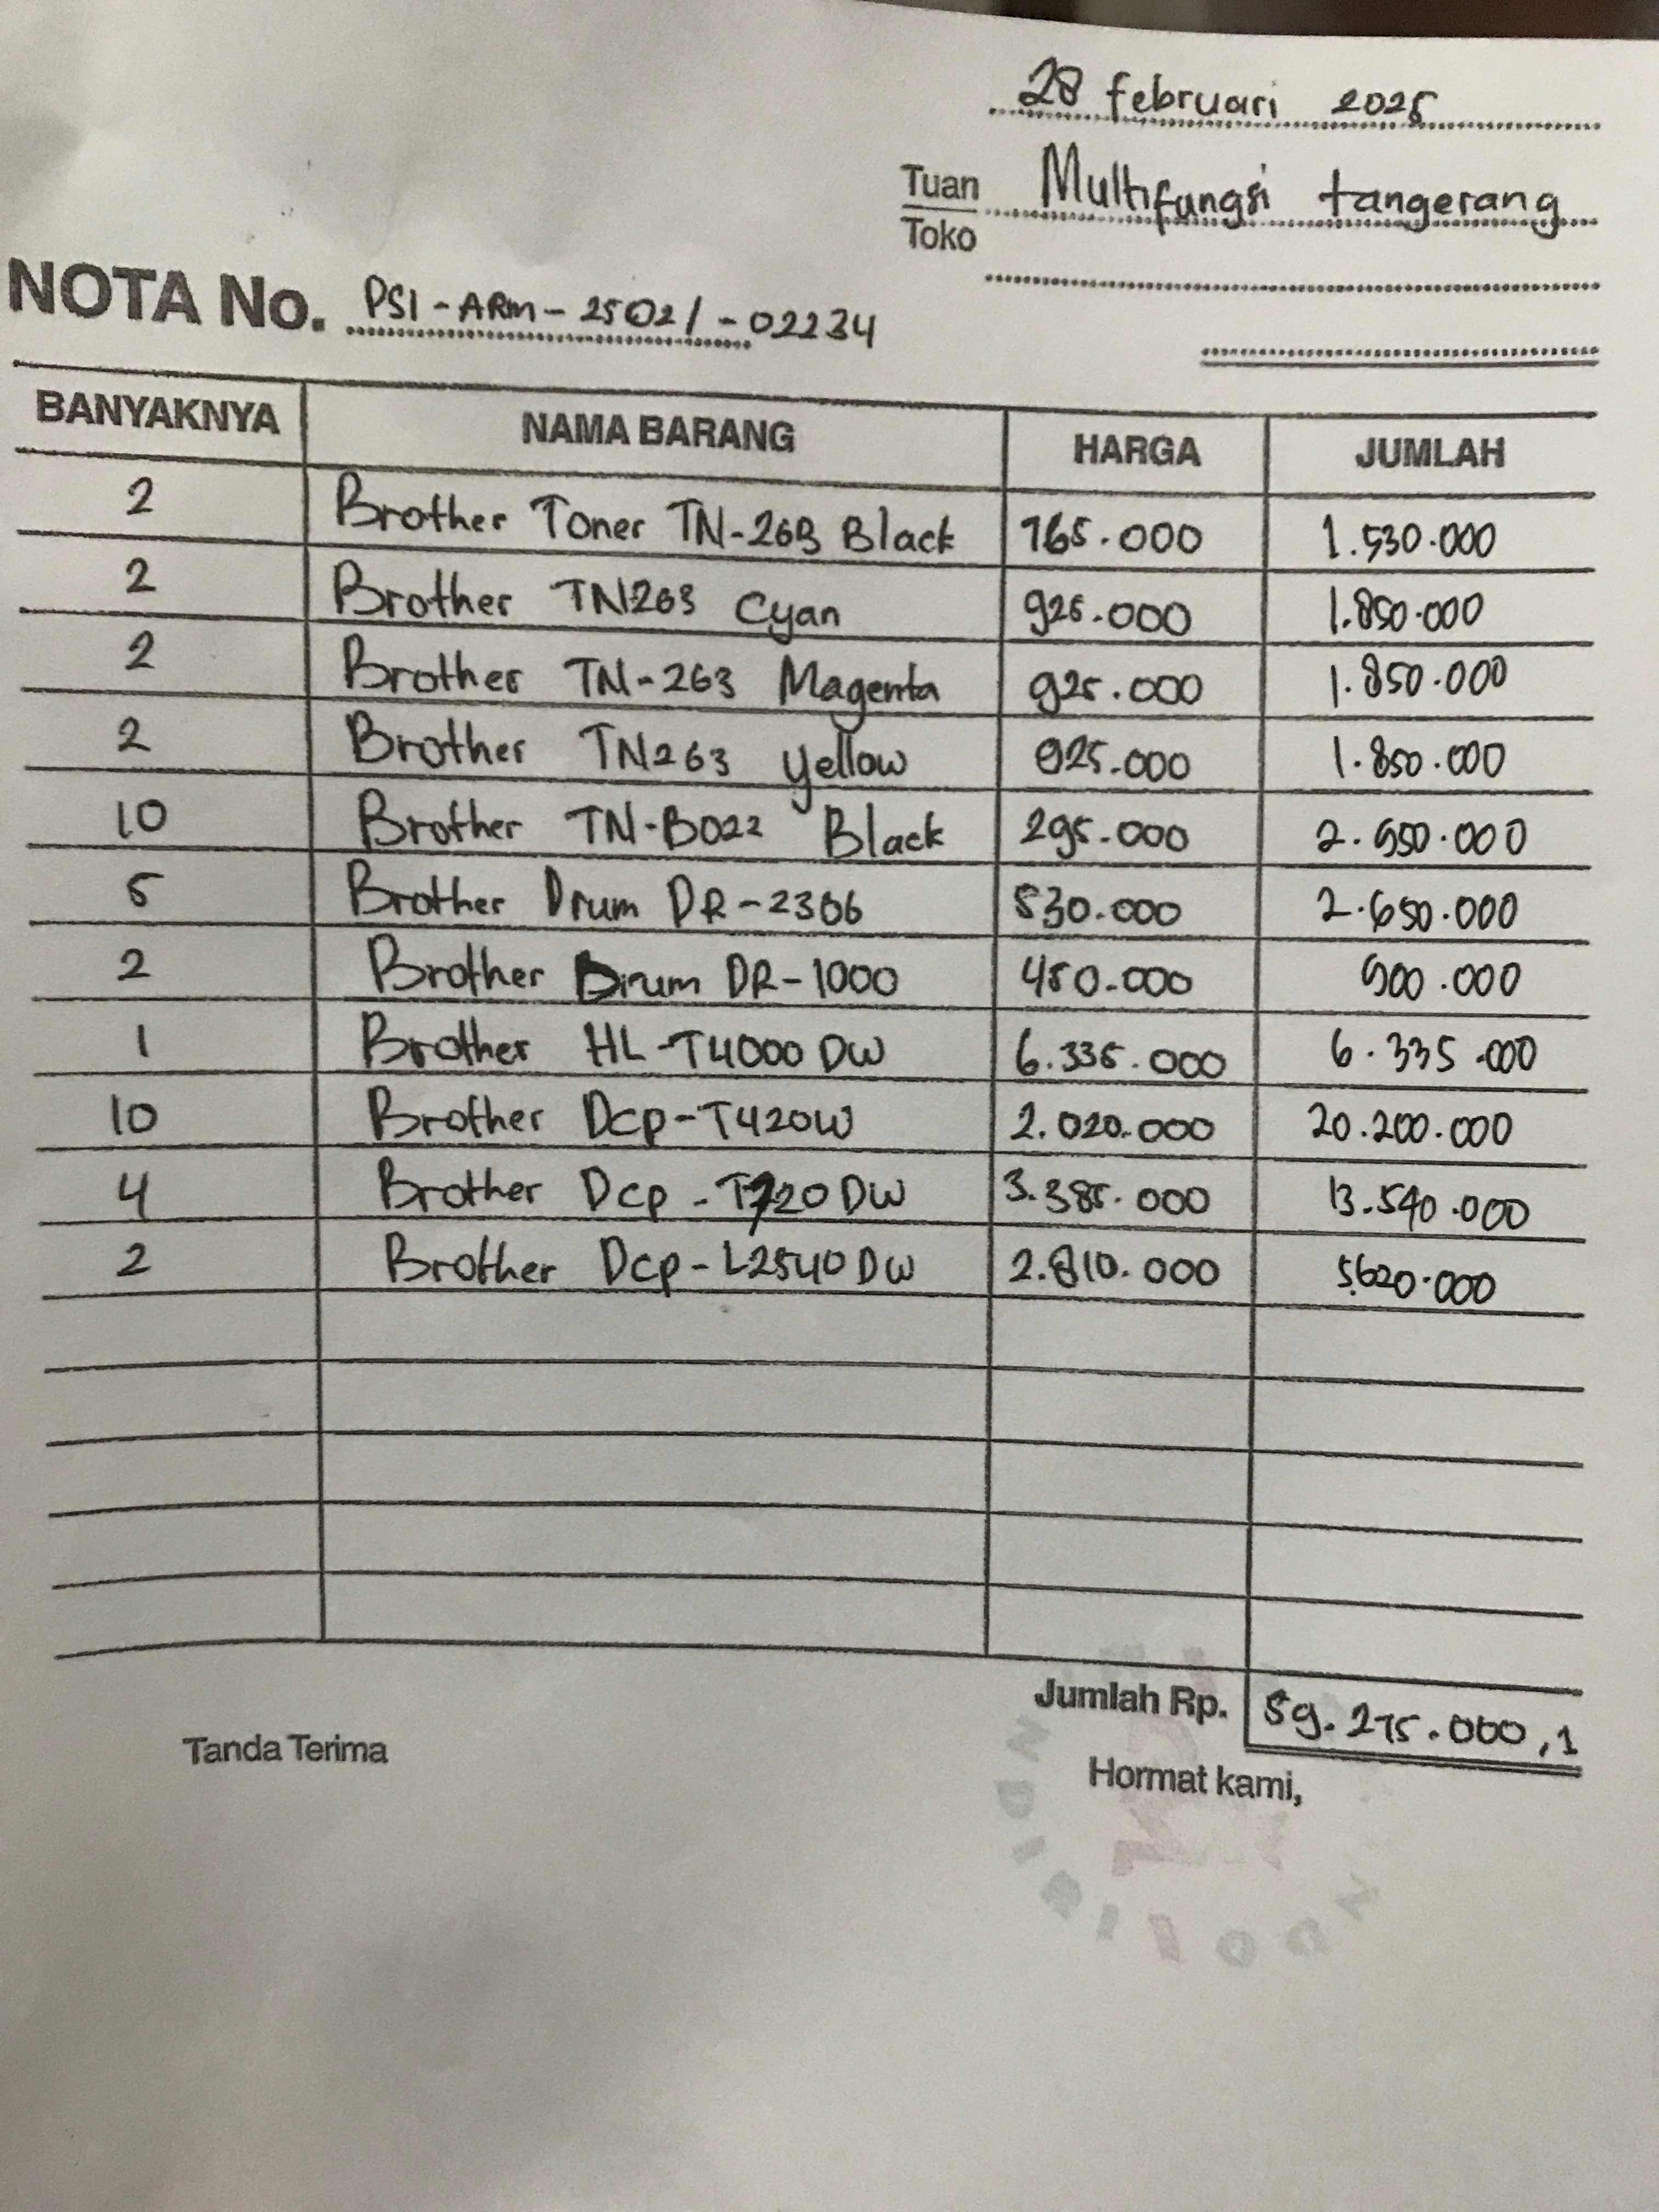 28 februari 2025
Tuan Multifungsi tangerang
Toko
NOTA No. PSI-ARM-2502/-02234
BANYAKNYA NAMA BARANG HARGA JUMLAH
2 Brother Toner TN-263 Black 765.000 1.530.000
2 Brother TN263 Cyan 925.000 1.850.000
2 Brother TN-263 Magenta 925.000 1.850.000
2 Brother TN263 Yellow 925.000 1.850.000
10 Brother TN-B022 Black 295.000 2.950.000
5 Brother Drum DR-2306 530.000 2.650.000
2 Brother Drum DR-1000 450.000 900.000
1 Brother HL-T4000 DW 6.335.000 6.335.000
10 Brother Dcp-T420W 2.020.000 20.200.000
4 Brother Dcp-T720 DW 3.385.000 13.540.000
2 Brother Dcp-L2540 DW 2.810.000 5.620.000
Jumlah Rp. 59.275.000,1
Tanda Terima
Hormat kami,